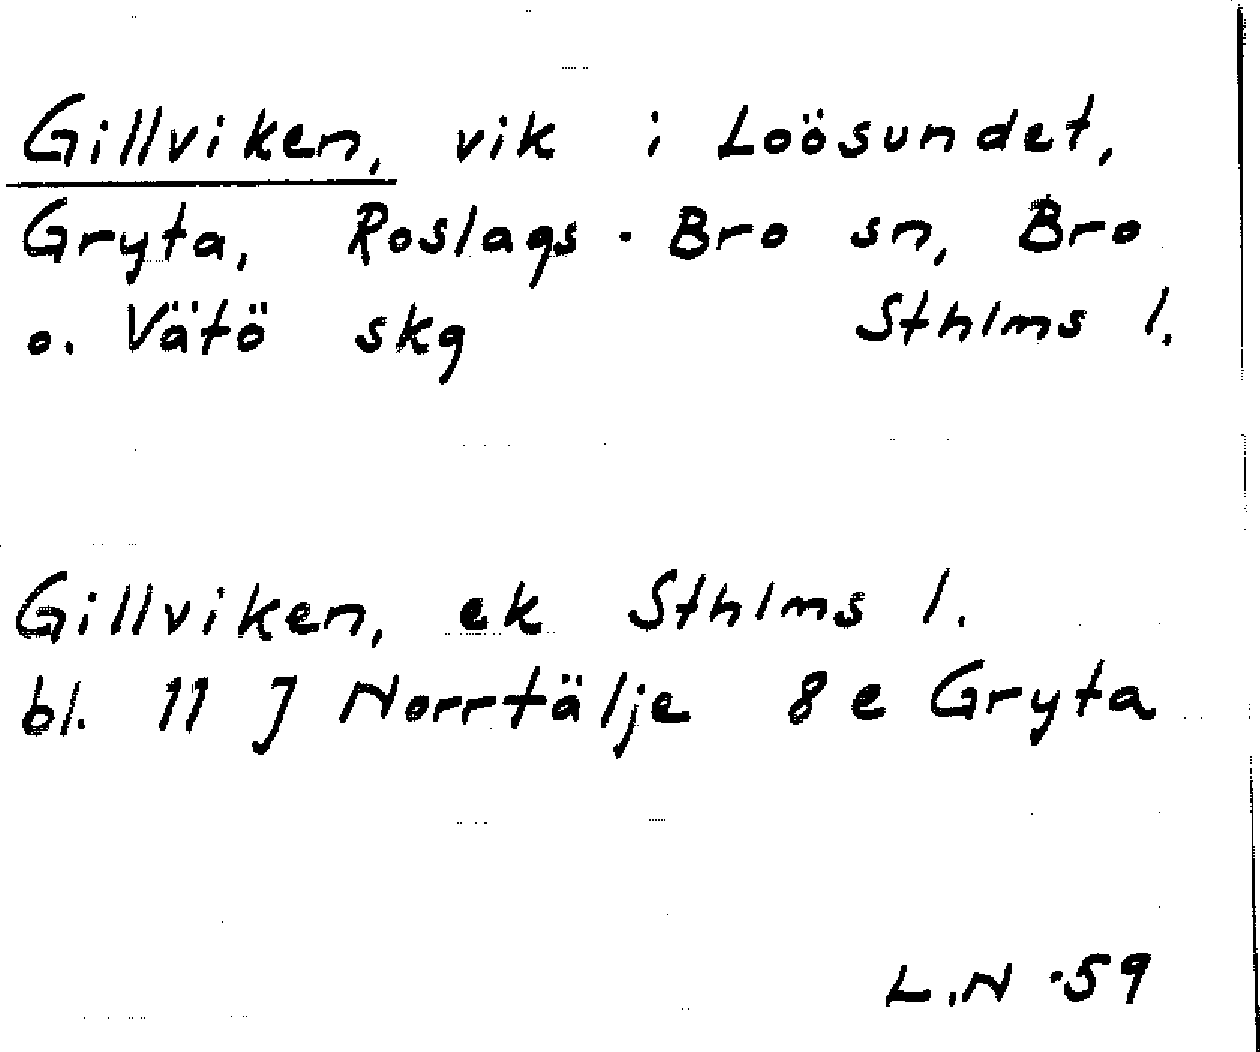 Gillviken, vik i Loösundet,
Gryta, Roslags-Bro sn, Bro
o. Vätö skg Sthlms l.
Gillviken, ek Sthlms l.
bl. 11 J Norrtälje 8 e Gryta
L.N -59